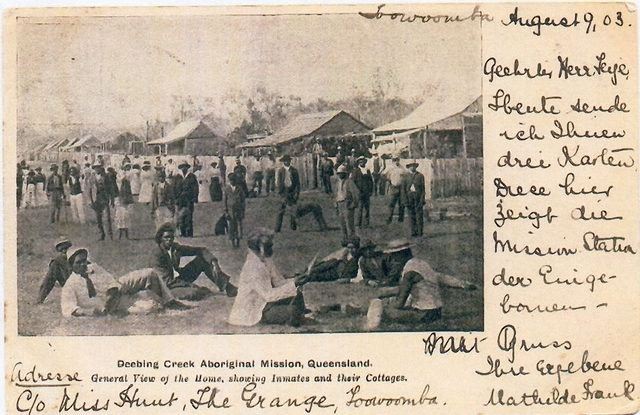 Toowoomba August 9, 03.
Geehrter Herr Heye,
Heute sende
ich Ihnen
drei Karten.
Diese hier
zeigt die
Mission Station
der Einge-
bornen -
Mit Gruss
Ihre Ergebene
Mathilde Frank
Deebing Creek Aboriginal Mission, Queensland.
General View of the Home, showing Inmates and their Cottages.
Adresse
C/o Miss Hunt, The Grange, Toowoomba.